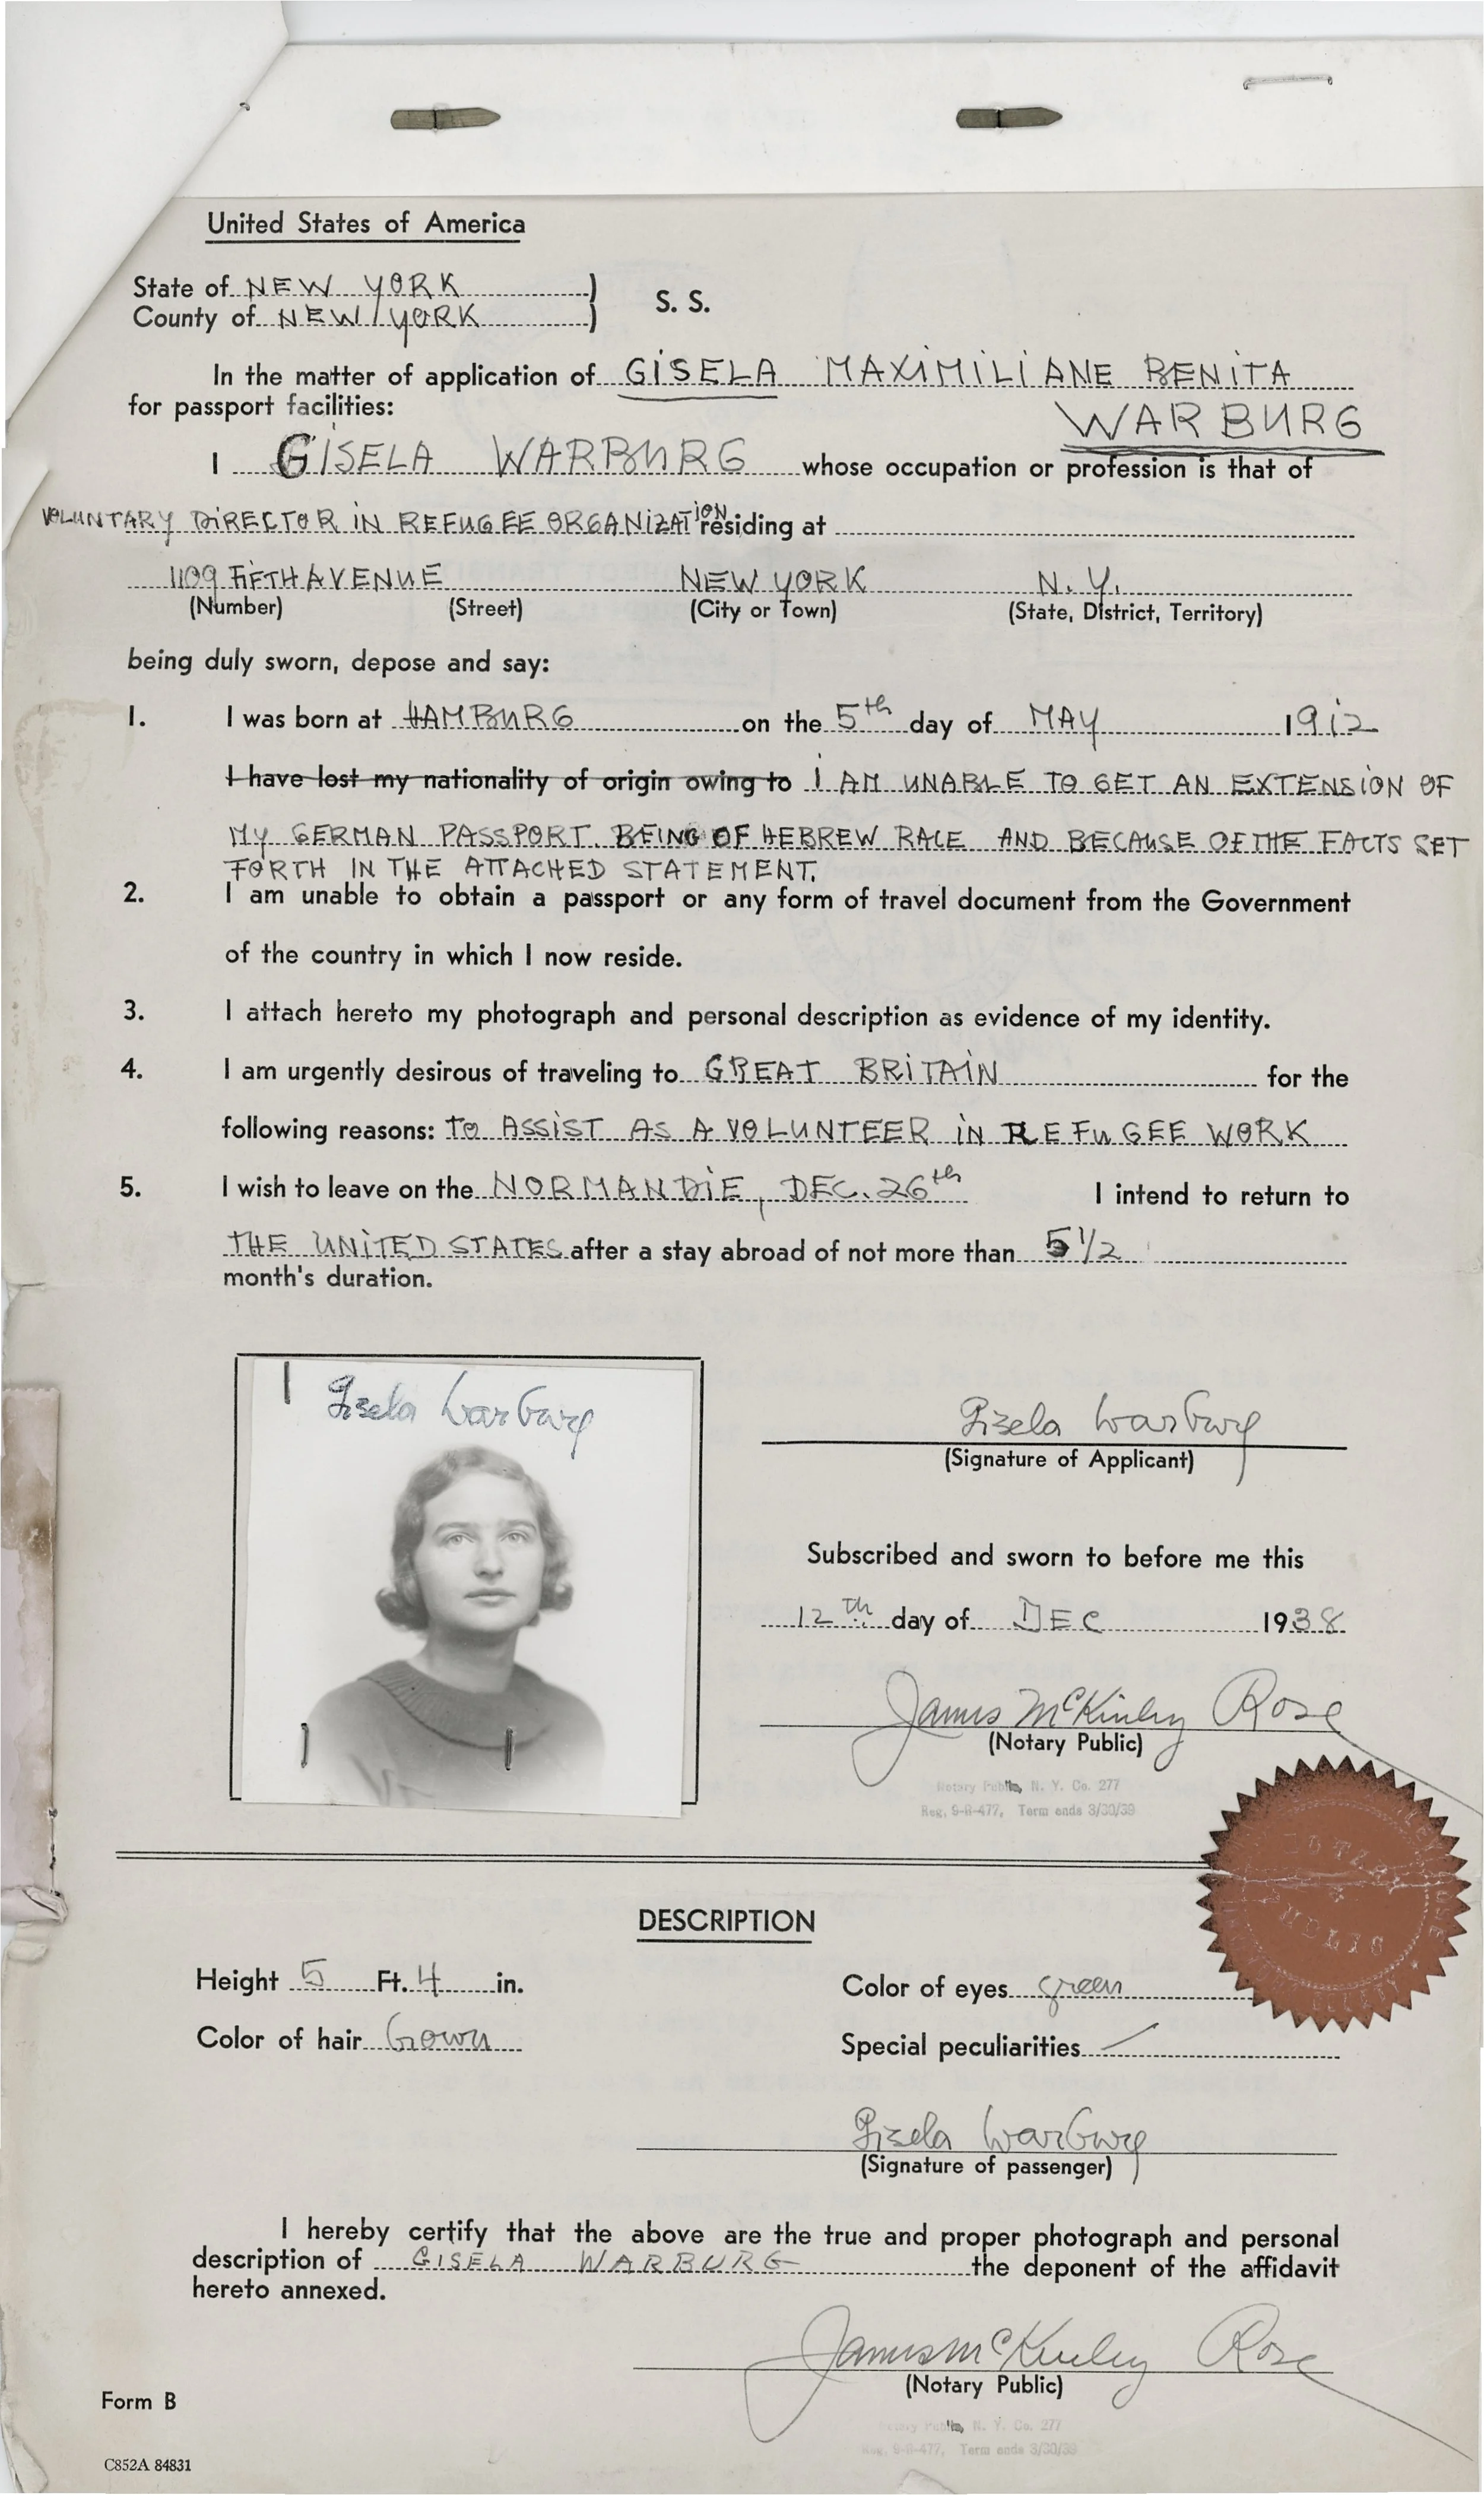 United States of America
State of NEW YORK )
County of NEW YORK ) S. S.
In the matter of application of GISELA MAXIMILIANE BENITA
for passport facilities: WARBURG
I GISELA WARBURG whose occupation or profession is that of
VOLUNTARY DIRECTOR IN REFUGEE ORGANIZATION residing at
1109 FIFTH AVENUE NEW YORK N. Y.
(Number) (Street) (City or Town) (State, District, Territory)
being duly sworn, depose and say:
1. I was born at HAMBURG on the 5th day of MAY 1912
I have lost my nationality of origin owing to I AM UNABLE TO GET AN EXTENSION OF
MY GERMAN PASSPORT. BEING OF HEBREW RACE AND BECAUSE OF THE FACTS SET
FORTH IN THE ATTACHED STATEMENT.
2. I am unable to obtain a passport or any form of travel document from the Government
of the country in which I now reside.
3. I attach hereto my photograph and personal description as evidence of my identity.
4. I am urgently desirous of traveling to GREAT BRITAIN for the
following reasons: TO ASSIST AS A VOLUNTEER IN REFUGEE WORK
5. I wish to leave on the NORMANDIE, DEC. 26th I intend to return to
THE UNITED STATES after a stay abroad of not more than 5 1/2
month's duration.
Gisela Warburg
Gisela Warburg
(Signature of Applicant)
Subscribed and sworn to before me this
12th day of DEC 1938
James McKinley Rose
(Notary Public)
Notary Public, N. Y. Co. 277
Reg. 9-R-477, Term ends 3/30/39
NOTARY
PUBLIC
DESCRIPTION
Height 5 Ft. 4 in. Color of eyes green
Color of hair brown Special peculiarities
Gisela Warburg
(Signature of passenger)
I hereby certify that the above are the true and proper photograph and personal
description of GISELA WARBURG the deponent of the affidavit
hereto annexed.
James McKinley Rose
(Notary Public)
Form B
Notary Public, N. Y. Co. 277
Reg. 9-R-477, Term ends 3/30/39
C852A 84831